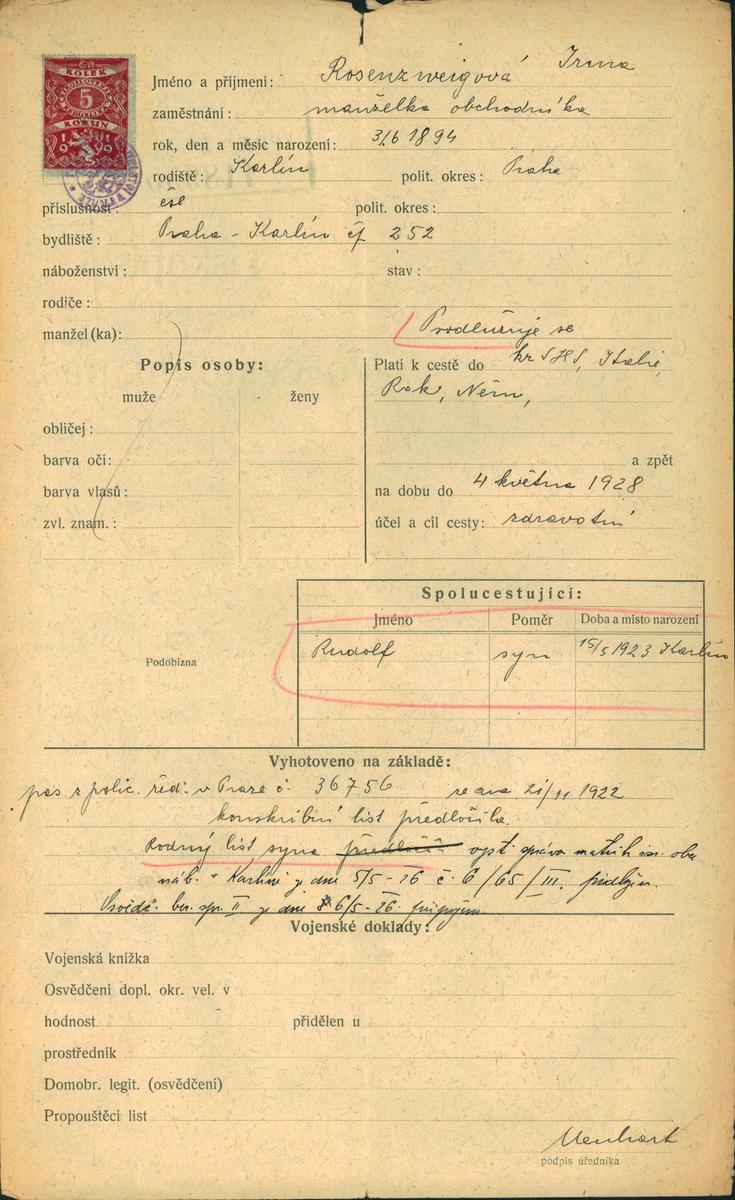 KOLEK
5
KORUN
1919
Jméno a příjmení: Rosenzweigová Irena
zaměstnání: manželka obchodníka
rok, den a měsíc narození: 3/6 1894
rodiště: Karlín polit. okres: Praha
příslušnost: čsl polit. okres:
bydliště: Praha - Karlín čp 252
náboženství: stav:
rodiče:
manžel(ka): Prodlužuje se
Popis osoby:
muže ženy
obličej:
barva očí:
barva vlasů:
zvl. znam.:
Platí k cestě do kr SHS, Italie,
Rak, Něm,
a zpět
na dobu do 4 května 1928
účel a cíl cesty: zdravotní
Podobizna
Spolucestující:
Jméno Poměr Doba a místo narození
Rudolf syn 15/5 1923 Karlín
Vyhotoveno na základě:
pas z polic. řed. v Praze č. 36756 ze dne 21/11 1922
konskribční list předložila.
Rodný list syna opt. správa matrik isr. ob.
náb. v Karlíně z dne 5/5-26 č. 6/65/III. předložen.
Osvědč. ber. spr. II z dne 6/5-26 připojen
Vojenské doklady:
Vojenská knížka
Osvědčení dopl. okr. vel. v
hodnost přidělen u
prostředník
Domobr. legit. (osvědčení)
Propouštěcí list
Menhart
podpis úředníka